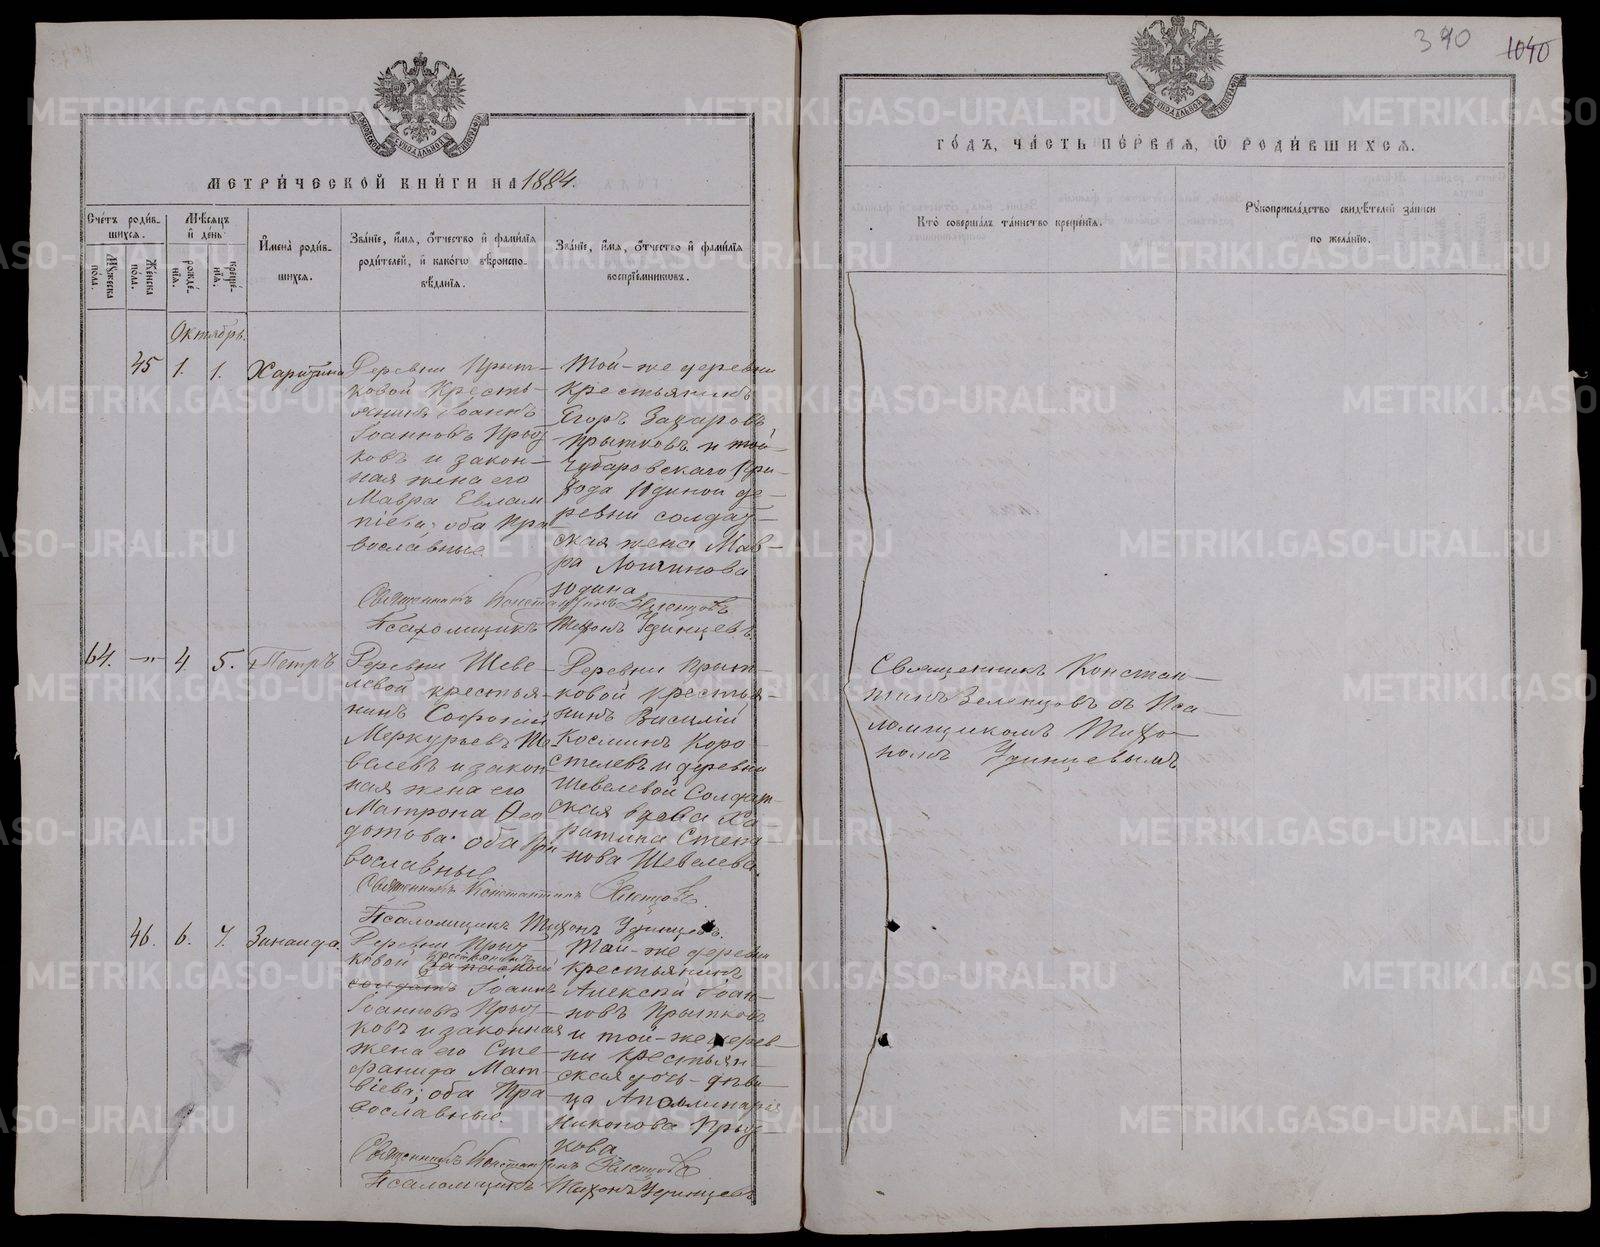 МЕТРИ́ЧЕСКОЙ КНИ́ГИ НА 1884.
Сче́тъ роди́в-
шихся.
Мѣ́сяцъ
и҆ де́нь
И҆мена̀ роди́в-
шихся.
Зва́нїе, и҆́мя, ѻ҆́тчество и҆ фами́лїя
роди́телей, и҆ како́гѡ вѣроиспо-
вѣ́данїя.
Зва́нїе, и҆́мя, ѻ҆́тчество и҆ фами́лїя
воспрїе́мникѡвъ.
Мꙋ́жеска
по́ла.
Же́нска
по́ла.
рожде́-
нїя.
креще́-
нїя.
Октябрь.
45 1. 1. Харитина
Деревни Прыт-
ковой Кресть-
янинъ Іоаннъ
Іоанновъ Прыт-
ковъ и закон-
ная жена его
Мавра Евлам
піева; оба Пра
вославные.
Той-же деревни
крестьянинъ
Егоръ Захаровъ
Прытковъ и той-
Чубаровскаго При-
хода Юдиной де-
ревни солдат-
ская жена Мав-
ра Логинова
Юдина
Священникъ Константинъ Зеленцовъ
Псаломщикъ Тихонъ Удинцевъ.
64. -"- 4 5. Петръ
Деревни Шеве-
левой крестья-
нинъ Софроній
Меркурьевъ Ше
велевъ и закон
ная жена его
Матрона Ѳео
дотова; оба Пра
вославные
Деревни Прыт-
ковой крестья-
нинъ Василій
Косминъ Коро-
стелевъ и деревни
Шевелевой Солдат-
ская вдова Ха
ритина Степа-
нова Шевелева.
Священникъ Константинъ Зеленцовъ.
Псаломщикъ Тихонъ Удинцевъ.
46. 6. 7. Зинаида.
Деревни Прыт-
ковой крестьянинъ запасной
солдатъ Іоаннъ
Іоанновъ Прыт-
ковъ и законная
жена его Сте-
фанида Мат-
віева; оба Пра-
вославные.
Той-же деревни
крестьянинъ
Алексій Іоан-
новъ Прытковъ
и той-же дерев-
ни крестьян-
ская дочь-дѣви-
ца Аполлинарія
Никонова Прыт-
кова.
Священникъ Константинъ Зеленцовъ
Псаломщикъ Тихонъ Удинцевъ
390 1040
ГО́ДЪ, ЧА́СТЬ ПЕ́РВАЯ, Ѡ҆ РОДИ́ВШИХСЯ.
Кто̀ соверша́лъ та́инство креще́нїя.
Рꙋкоприкла́дство свидѣ́телей за́писи
по жела́нїю.
Священникъ Констан-
тинъ Зеленцовъ съ Пса-
ломщикомъ Тихо-
номъ Удинцевымъ
METRIKI.GASO-URAL.RU